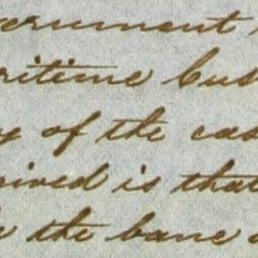 ernment
ritime bus
of the cas
ived is that
the bane